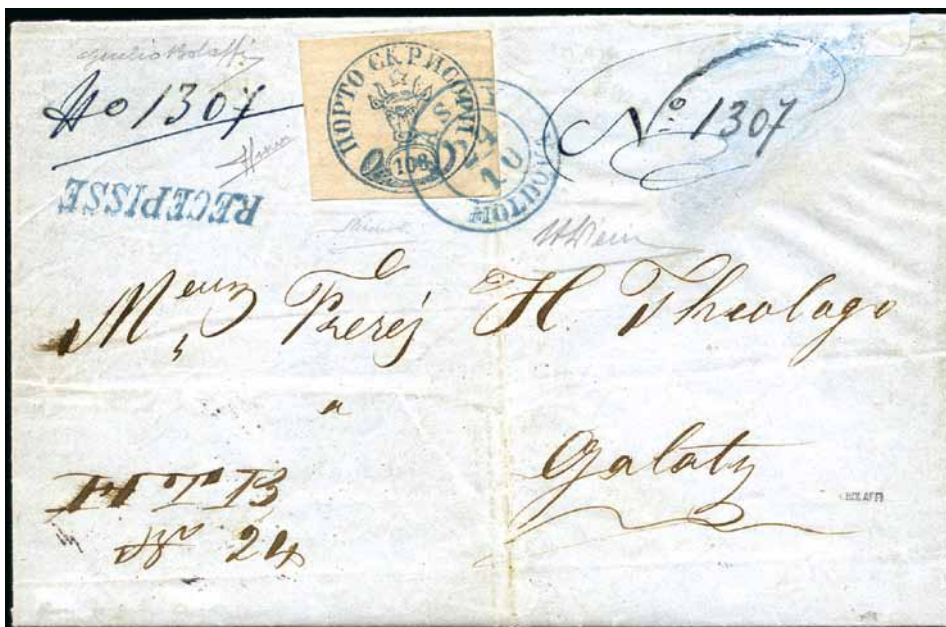 Giulio Bolaffi
No 1307
RECEPISSE
ПОРТО СКРИСОРИ
108
MOLDOVA
No. 1307
Meurs Freres H. Theologo
a
Galatz
HTB
No 24
BOLAFFI